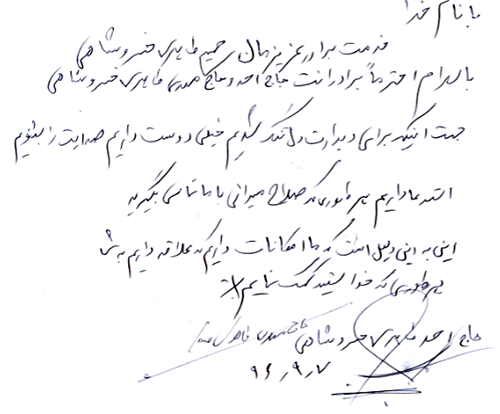 با نام خدا
خدمت برادر عزیزمان رحیم طاهری خسروشاهی
با سلام احتراماً برادرانت حاج احد و حاج مهدی طاهری خسروشاهی
جهت اینکه برای دیدارت دل تنگ شدیم خیلی دوست داریم صدایت را بشنویم
استدعا داریم هر طوری که صلاح میدانی با ما تماس بگیرید
این به این دلیل است که ما امکانات داریم که علاقه داریم به شما
هر طوری که خدا کمک نمایم
حاج احد طاهری خسروشاهی حاج مهدی طاهری
۹۶/۹/۷